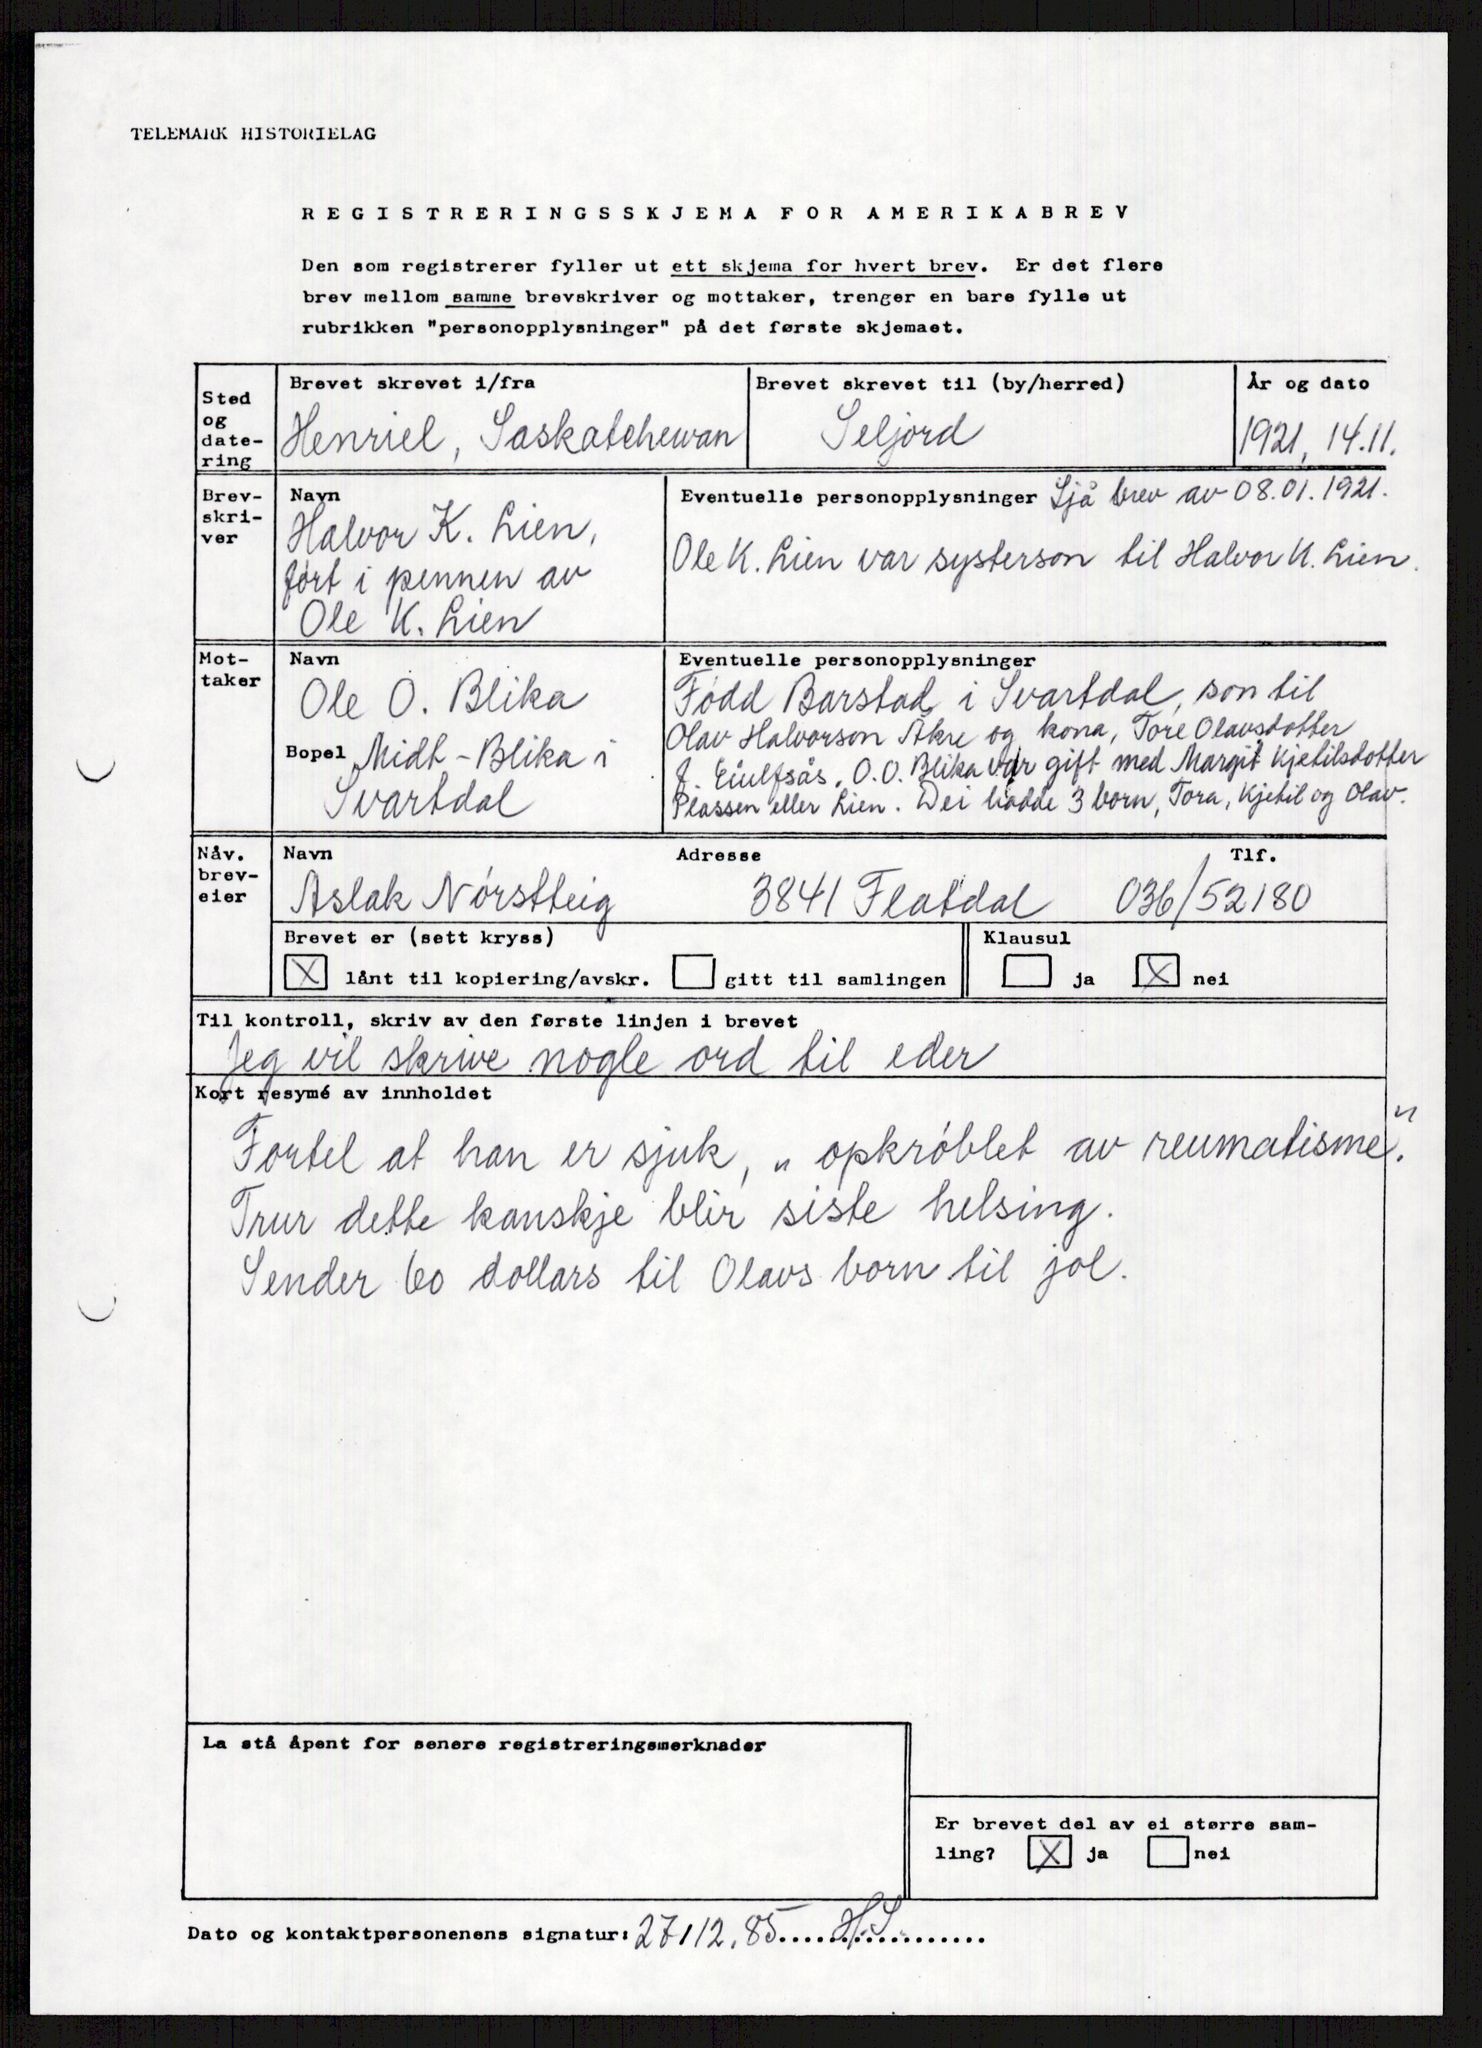 TELEMARK HISTORIELAG
REGISTRERINGSSKJEMA FOR AMERIKABREV
Den som registrerer fyller ut ett skjema for hvert brev. Er det flere
brev mellom samme brevskriver og mottaker, trenger en bare fylle ut
rubrikken "personopplysninger" på det første skjemaet.
Sted
og
date-
ring
Brevet skrevet i/fra
Henriel, Saskatchewan
Brevet skrevet til (by/herred)
Seljord
År og dato
1921, 14.11.
Brev-
skri-
ver
Navn
Halvor K. Lien,
ført i pennen av
Ole K. Lien
Eventuelle personopplysninger Sjå brev av 08.01.1921.
Ole K. Lien var systerson til Halvor K. Lien.
Mot-
taker
Navn
Ole O. Blika
Bopel Midt-Blika i
Svartdal
Eventuelle personopplysninger
Født Barstad i Svartdal, son til
Olav Halvorson Åkre og kona, Tore Olavsdotter
f. Eiulfsås. O.O. Blika var gift med Margit Kjetilsdotter
Plassen eller Lien. Dei hadde 3 born, Tora, Kjetil og Olav.
Nåv.
brev-
eier
Navn
Aslak Nørstteig
Adresse
3841 Flatdal
Tlf.
036/52180
Brevet er (sett kryss)
X lånt til kopiering/avskr. gitt til samlingen
Klausul
ja X nei
Til kontroll, skriv av den første linjen i brevet
Jeg vil skrive nogle ord til eder
Kort resymé av innholdet
Fortel at han er sjuk, „opkrøblet av reumatisme."
Trur dette kanskje blir siste helsing.
Sender 60 dollars til Olavs born til jol.
La stå åpent for senere registreringsmerknader
Er brevet del av ei større sam-
ling? X ja nei
Dato og kontaktpersonenens signatur: 27/12.85.....H.S.................